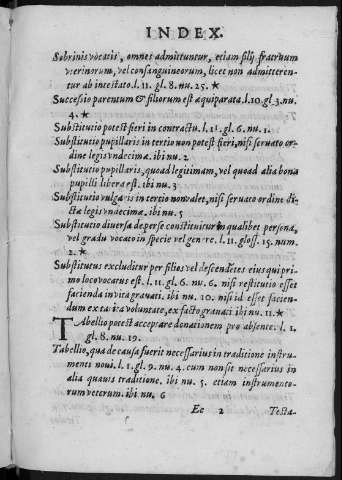 INDEX.
Sobrinis vocatis, omnes admittuntur, etiam filij fratruum
vterinorum, vel consanguineorum, licet non admitteren-
tur ab intestato. l. 11. gl. 8. nu. 25. ★
Successio parentum & filiorum est æquiparata. l. 10. gl. 3. nu.
4. ★
Substitutio potest fieri in contractu. l. 1. gl. 6. nu. 1.
Substitutio pupillaris in tertio non potest fieri, nisi seruato or
dine legis vndecimæ. ibi nu. 2
Substitutio pupillaris, quoad legitimam, vel quoad alia bona
pupilli libera est. ibi nu. 3
Substitutio vulgaris in tertio non valet, nisi seruato ordine di-
ctæ legis vndecimæ. ibi nu. 5
Substitutio diuersa de per se constituitur in qualibet persona,
vel gradu vocato in specie vel genere. l. 11. gloss. 15. num.
2. ★
Substitutus excluditur per filios vel descendẽtes eius qui pri
mo loco vocatus est. l. 11. gl. 6. nu. 6. nisi restitutio esset
facienda in vita grauati. ibi nu. 10. nisi id esset facien-
dum ex tacita voluntate, ex facto grauati ibi nu. 11. ★
TAbellio potest acceptare donationem pro absente. l. 1.
gl. 8. nu. 19.
Tabellio, qua de causa fuerit necessarius in traditione instru-
menti noui. l. 1. gl. 9. nu. 4. cum non sit necessarius in
alia quauis traditione. ibi nu. 5. etiam instrumento-
rum veterum. ibi nu. 6
Ee 2 Testa-